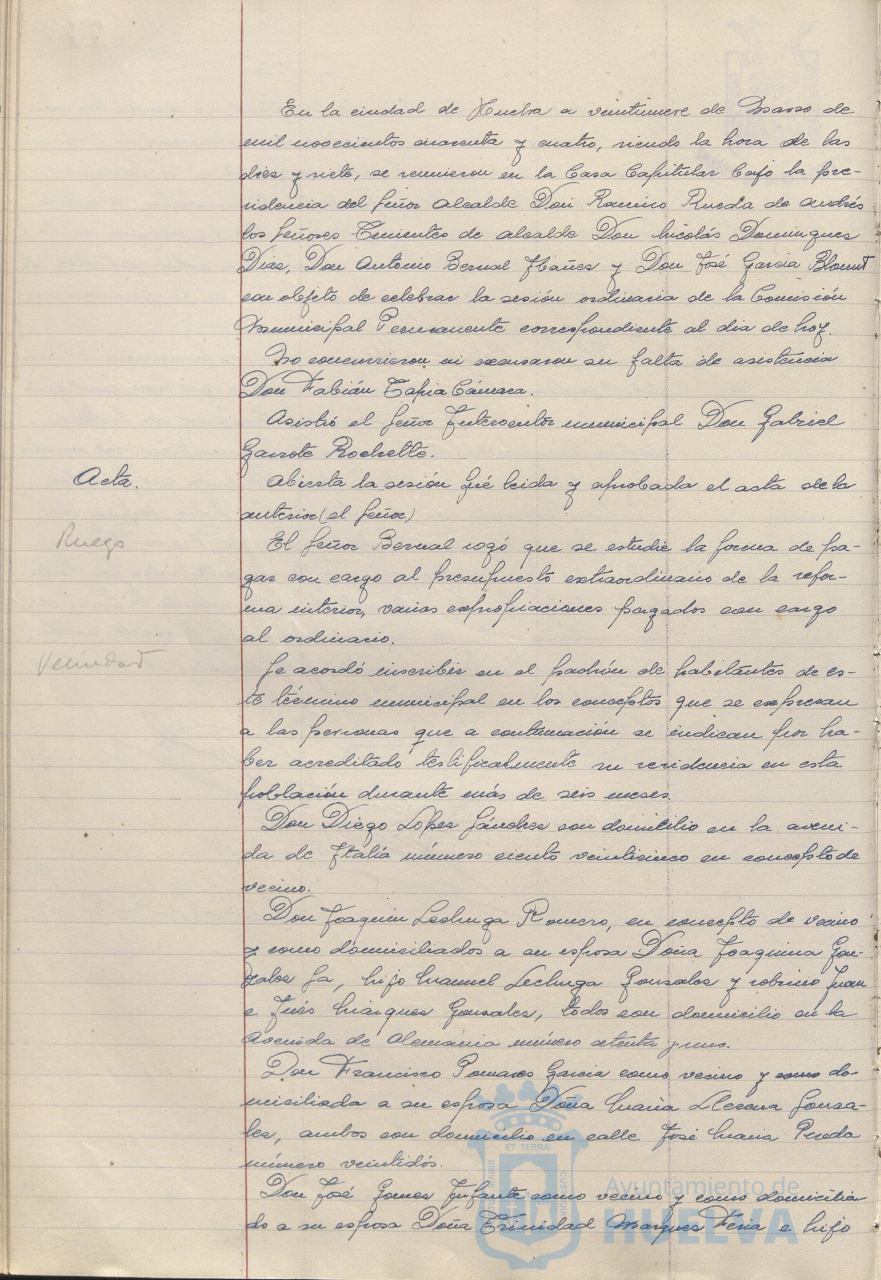 En la ciudad de Huelva a veintinueve de Marzo de
mil novecientos cuarenta y cuatro, siendo la hora de las
diez y siete, se reunieron en la Casa Capitular bajo la pre-
sidencia del Señor Alcalde Don Ramiro Rueda de Andrés
los Señores Tenientes de Alcalde Don Nicolás Domingues
Dias, Don Antonio Bernal Ibañes y Don José Garcia Blount
con objeto de celebrar la sesión ordinaria de la Comisión
Municipal Permanente correspondiente al dia de hoy.
No concurrieron ni excusaron su falta de asistencia
Don Fabián Tapia Cámara.
Asistió el Señor Interventor municipal Don Gabriel
Garrote Rochette.
Acta.
Abierta la sesión fué leida y aprobada el acta de la
anterior (el Señor)
Ruego
El Señor Bernal rogó que se estudie la forma de pa-
gar con cargo al presupuesto extraordinario de la refor-
ma interior, varias expropiaciones pagados con cargo
al ordinario.
Vecindad
Se acordó inscribir en el padrón de habitantes de es-
te término municipal en los conceptos que se expresan
a las personas que a continuación se indican por ha-
ber acreditado testificalmente su residencia en esta
población durante más de seis meses.
Don Diego Lopes Sánches con domicilio en la aveni-
da de Italía número ciento veinticinco en concepto de
vecino.
Don Joaquin Lechuga Romero, en concepto de vecino
y como domiciliados a su esposa Doña Joaquina Gon-
zales hijo Manuel Lechuga Gonsales y sobrino Juan
e Inés Márques Gonsales, todos con domicilio en la
Avenida de Alemania número setenta y uno.
Don Francisco Pomares Garcia como vecino y como do-
miciliada a su esposa Doña Maria Llerena Gonsa-
les, ambos con domicilio en calle José Maria Pereda
número veintidós.
Don José Gomes Infante como vecino y como domicilia
do a su esposa Doña Trinidad Marques Feria e hijo
ET TERRÆ
Ayuntamiento de
HUELVA